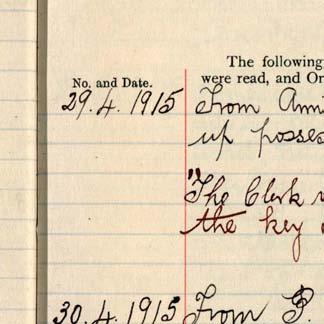 The following
No. and Date. were read, and Or
29.4.1915 From Ann
up posses
"The Clerk
the key
30.4.1915 From P.